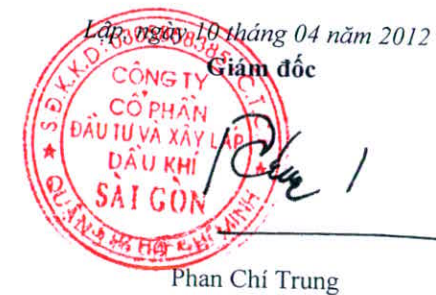 Lập, ngày 10 tháng 04 năm 2012
Giám đốc
CÔNG TY
CỔ PHẦN
ĐẦU TƯ VÀ XÂY LẮP
DẦU KHÍ
SÀI GÒN
S.Đ.K.K.D: C.T.C.P
QUẬN HỒ CHÍ MINH
Phan Chí Trung